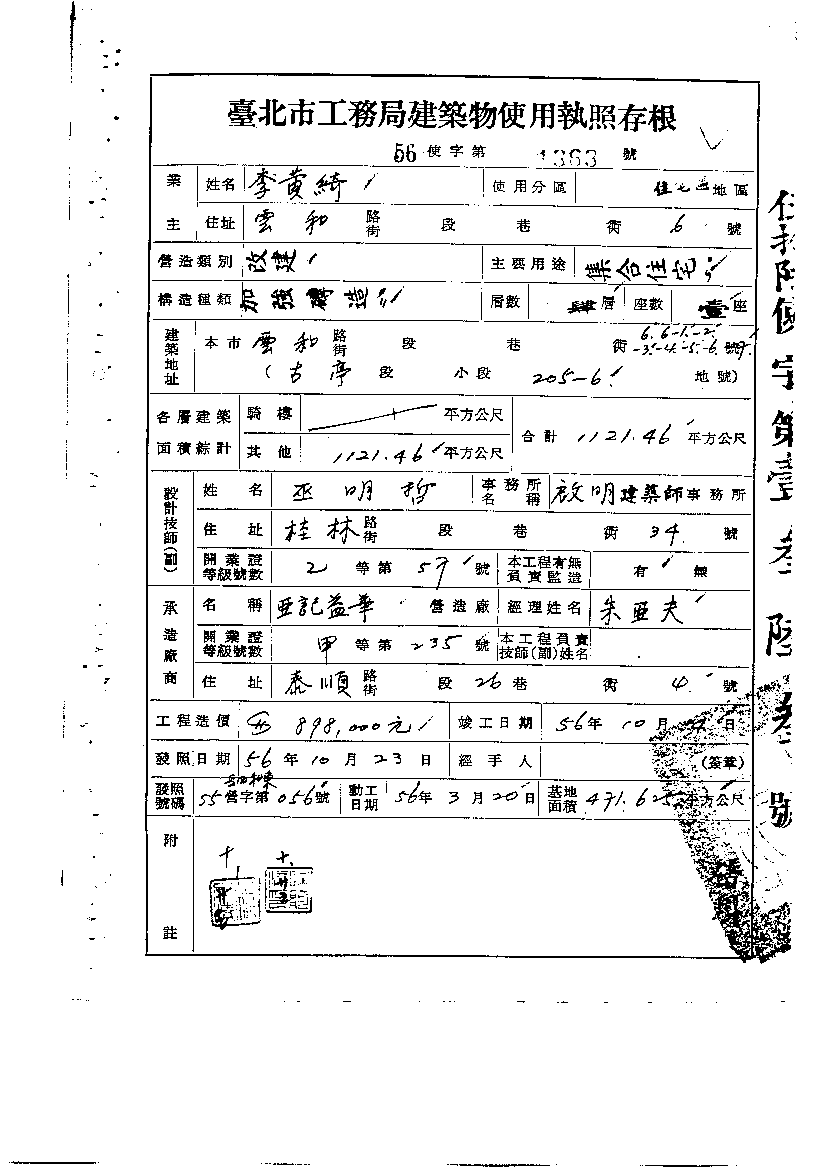 臺北市工務局建築物使用執照存根
56 使字第 1363 號
業主 姓名 李黃綺 使用分區 住宅區地區
住址 雲和 路街 段 巷 衖 6 號
營造類別 改建 主要用途 集合住宅
構造種類 加強磚造 層數 肆層 座數 壹座
建築地址 本市 雲和 路街 段 巷 衖 6.6-1.-2. -3.-4.-5.-6. 號
(古亭 段 小段 205-6 地號)
各層建築面積綜計 騎樓 平方公尺 合計 1121.46 平方公尺
其他 1121.46 平方公尺
設計技師(副) 姓名 巫明哲 事務所名稱 啟明建築師事務所
住址 桂林 路街 段 巷 衖 34 號
開業證等級號數 2 等第 57 號 本工程有無負責監造 有 無
承造廠商 名稱 亞記益華 營造廠 經理姓名 朱亞夫
開業證等級號數 甲 等第 235 號 本工程負責技師(副)姓名
住址 泰順 路街 段 26 巷 衖 4 號
工程造價 898,000元 竣工日期 56年 10月 日
發照日期 56年 10月 23日 經手人 (簽章)
發照號碼 55 營字第 056 號 動工日期 56年 3月 20日 基地面積 471.625 平方公尺
附註
十 十
伍拾陸使字第壹叁陸叁號